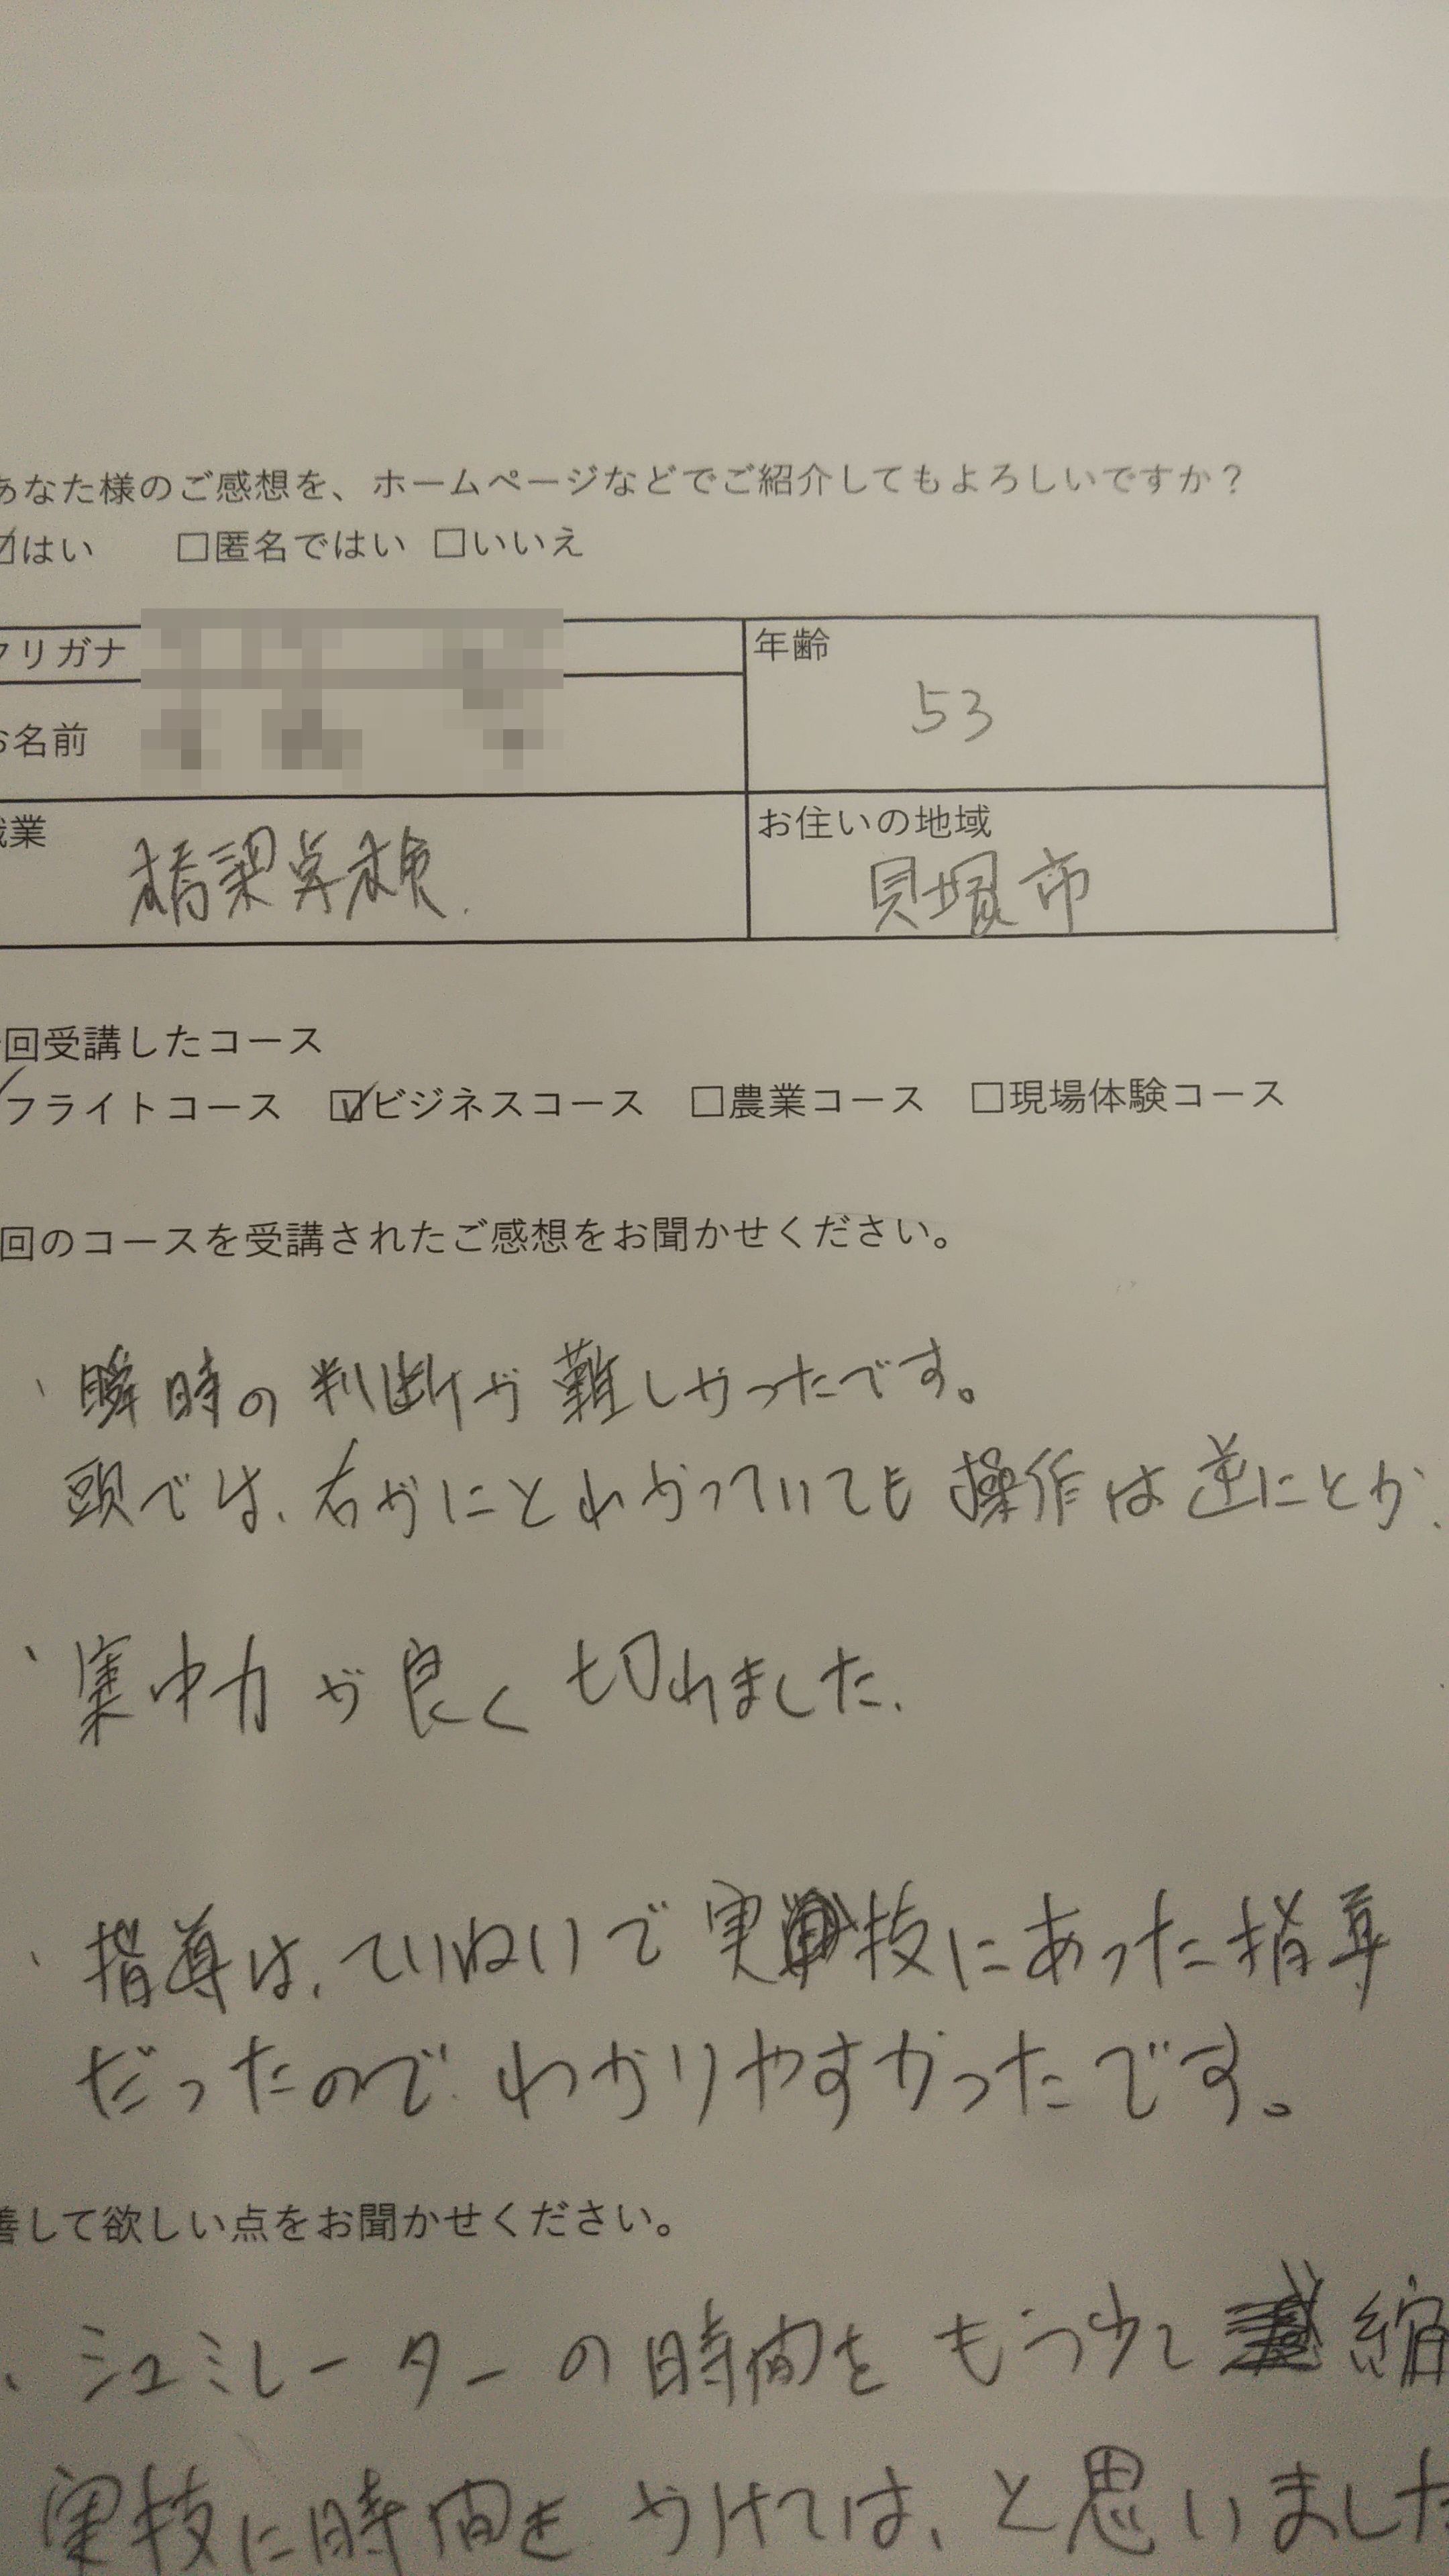 あなた様のご感想を、ホームページなどでご紹介してもよろしいですか？
☑はい □匿名ではい □いいえ
フリガナ
お名前
年齢
53
職業
橋梁点検.
お住いの地域
貝塚市
回受講したコース
✓フライトコース ☑ビジネスコース □農業コース □現場体験コース
回のコースを受講されたご感想をお聞かせください。
・瞬時の判断が難しかったです。
頭では、右がにとわかっていても操作は逆にとか、
・集中力が良く切れました.
・指導は、ていねいで実技にあった指導
だったので わかりやすかったです。
善して欲しい点をお聞かせください。
・シュミレーターの時間をもう少し縮
実技に時間を かけては、と思いました